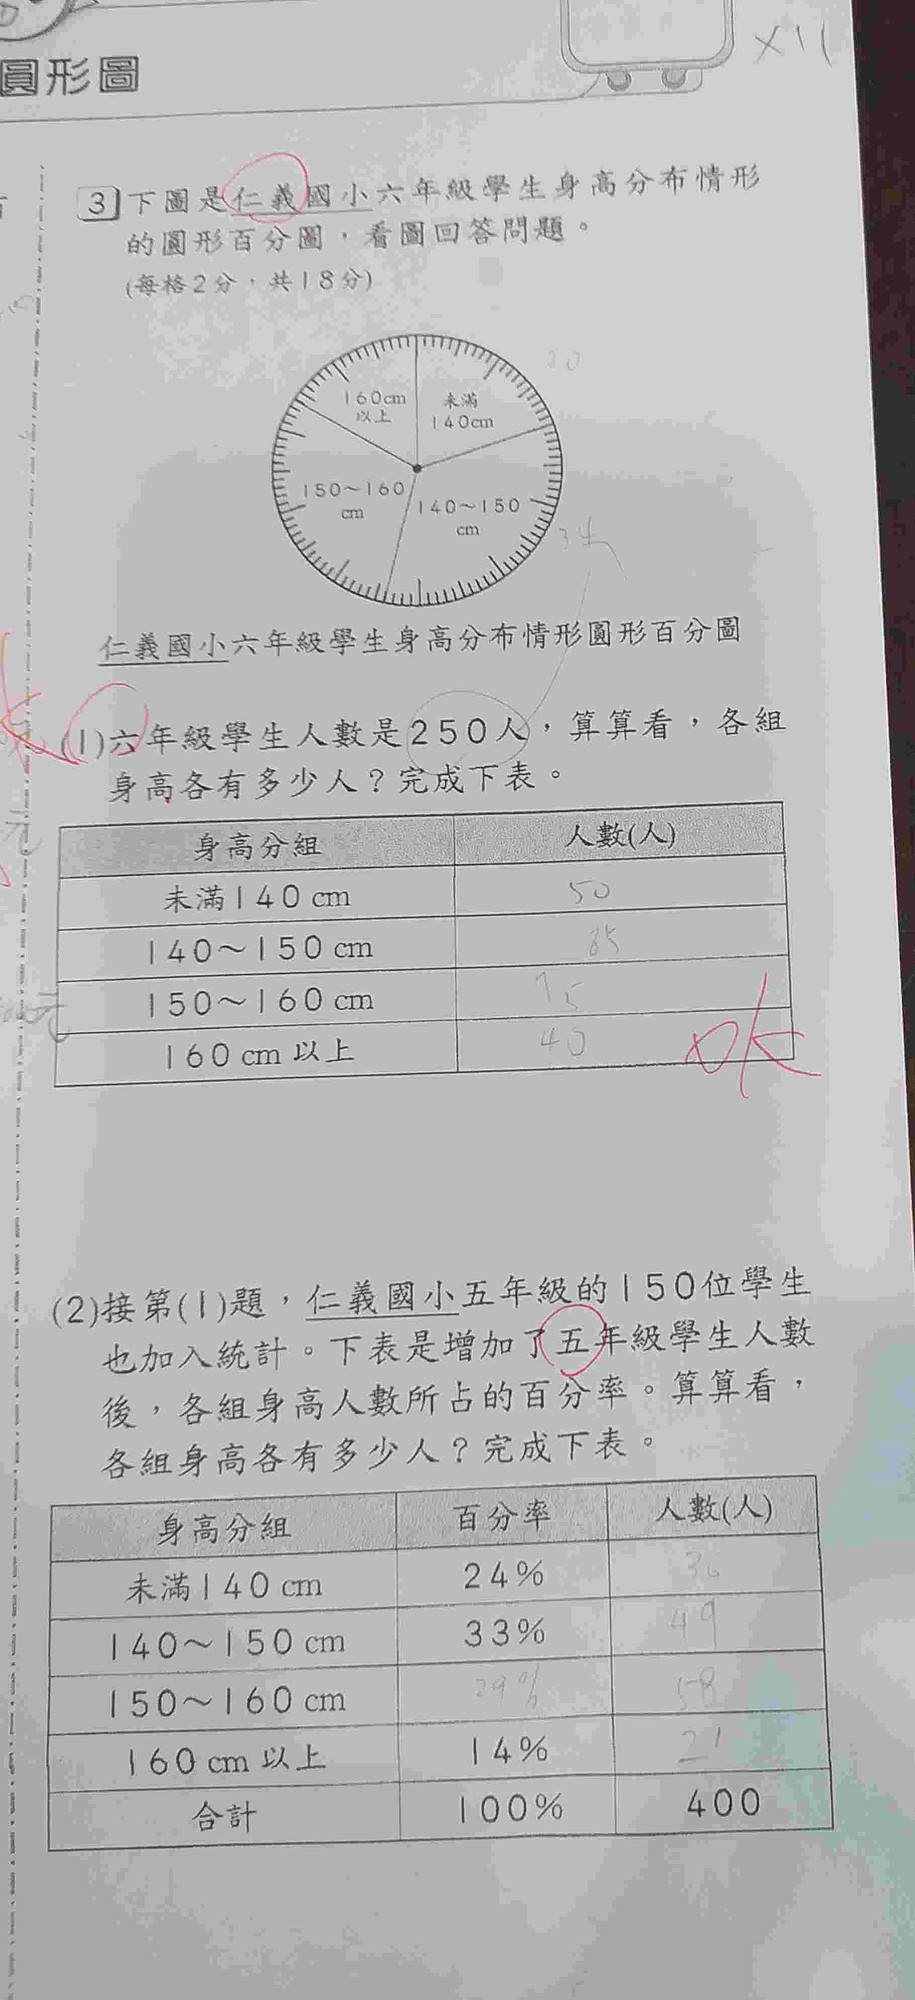 ×11
圓形圖
3 下圖是仁義國小六年級學生身高分布情形
的圓形百分圖，看圖回答問題。
(每格2分，共18分)
20
160cm
以上
未滿
140cm
150～160
cm
140～150
cm
仁義國小六年級學生身高分布情形圓形百分圖
(1)六年級學生人數是250人，算算看，各組
身高各有多少人？完成下表。
身高分組 人數(人)
未滿140 cm 50
140～150 cm 85
150～160 cm 75
160 cm 以上 40
ok
(2)接第(1)題，仁義國小五年級的150位學生
也加入統計。下表是增加了五年級學生人數
後，各組身高人數所占的百分率。算算看，
各組身高各有多少人？完成下表。
身高分組 百分率 人數(人)
未滿140 cm 24% 36
140～150 cm 33% 49
150～160 cm 29% 58
160 cm 以上 14% 21
合計 100% 400